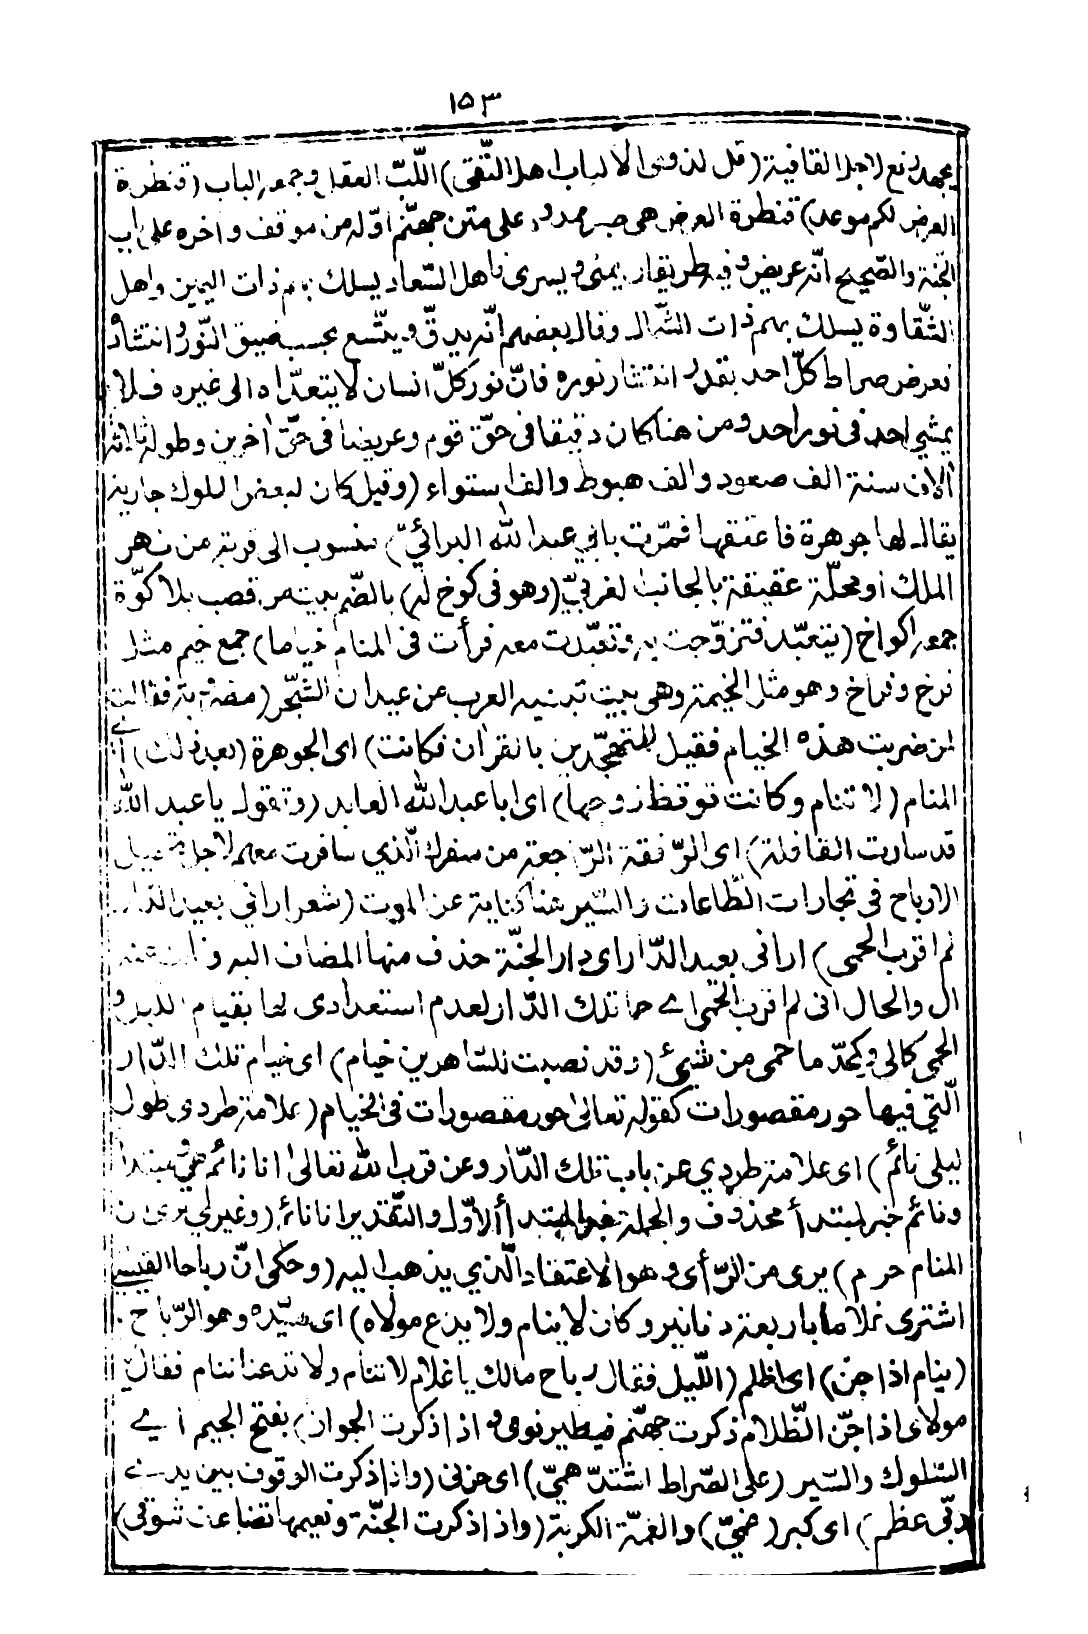 ١٥٣
لاجل القافية (قل لذوى الالباب اهل التّقى) اللّبّ العقل وجمعه الباب (قنطرة
العرض لكم موعد) قنطرة العرض هى جسر ممدود على متن جهنّم اوّله من موقف وآخره على باب
الجنّة والصّحيح انّه عريض وفيه طريقان يمنى ويسرى فاهل السّعادة يسلك بهم ذات اليمين واهل
الشّقاوة يسلك بهم ذات الشّمال وقال بعضهم انّه يدقّ ويتّسع بحسب ضيق النّور وانتشاره
فعرض صراط كلّ احد بقدر انتشار نوره فانّ نور كلّ انسان لا يتعدّاه الى غيره فلا
يمشى احد فى نور احد ومن هنا كان دقيقا فى حقّ قوم وعريضا فى حقّ آخرين وطوله ثلاثة
آلاف سنة الف صعود والف هبوط والف استواء (وقيل كان لبعض الملوك جارية
يقال لها جوهرة فاعتقها فمرّت بابي عبد الله البرائيّ) منسوب الى قرية من نهر
الملك او محلّة عتيقة بالجانب الغربيّ (وهو فى كوخ له) بالضّم بيت من قصب بلا كوّة
جمعه اكواخ (يتعبّد فتزوّجت به وتعبّدت معه فرأت فى المنام خياما) جمع خيم مثل
فرخ وفراخ وهو مثل الخيمة وهى بيت تبنيه العرب من عيدان الشّجر (مضروبة فقالت
لمن ضربت هذه الخيام فقيل للمتهجّدين بالقرآن فكانت) اى الجوهرة (بعد ذلك) اى
المنام (لا تنام وكانت توقظ زوجها) اى ابا عبد الله العابد (وتقول يا عبد الله
قد سارت القافلة) اى الرّفقة الرّاجعة من سفرك الّذي سافرت معهم لاجل تحصيل
الارباح فى تجارات الطّاعات والسّير هنا كناية عن الموت (شعر اراني بعيد الدّار
لم اقرب الحمى) ارانى بعيد الدّار اى دار الجنّة حذف منها المضاف اليه و عنه
ال والحال انى لم اقرب الحمى اى حما تلك الدّار لعدم استعدادى لها بقيام اللّيل و
الحمى كالى ويمدّ ما حمى من شيئ (وقد نصبت للسّاهرين خيام) اى خيام تلك الدّار
الّتي فيها حور مقصورات كقوله تعالى حور مقصورات فى الخيام (علامة طردى طول
ليلى نائم) اى علامة طردي عن باب تلك الدّار وعن قرب الله تعالى انا نائم فهى مبتدأ
ونائم خبر لمبتدأ محذوف والجملة خبر المبتدأ الاوّل والتّقدير انا نائم (وغيرى يرى ان
المنام حرام) يرى من الرّأى وهو الاعتقاد الّذي يذهب اليه (وحكى انّ رباحا القيسى
اشترى غلاما باربعة دنانير وكان لا ينام ولا يدع مولاه) اى سيّده وهو الرّباح
(ينام اذا جنّ) اى اظلم (اللّيل فقال رباح مالك يا غلام لا تنام ولا تدعنا ننام فقال
مولاى اذا جنّ الظّلام ذكرت جهنّم فيطير نومى واذا ذكرت الجواز) بفتح الجيم اى
السّلوك والسّير (على الصّراط اشتدّ همّيّ) اى حزنى (واذا ذكرت الوقوف بين يدى
ربّى عظم) اى كبر (غمّيّ) والغمّة الكربة (واذا ذكرت الجنّة ونعيمها تضاعف شوقى)